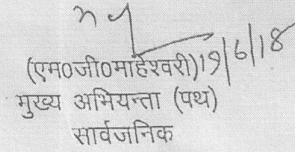 (एम०जी०माहेश्वरी) 19/6/18
मुख्य अभियन्ता (पथ)
सार्वजनिक